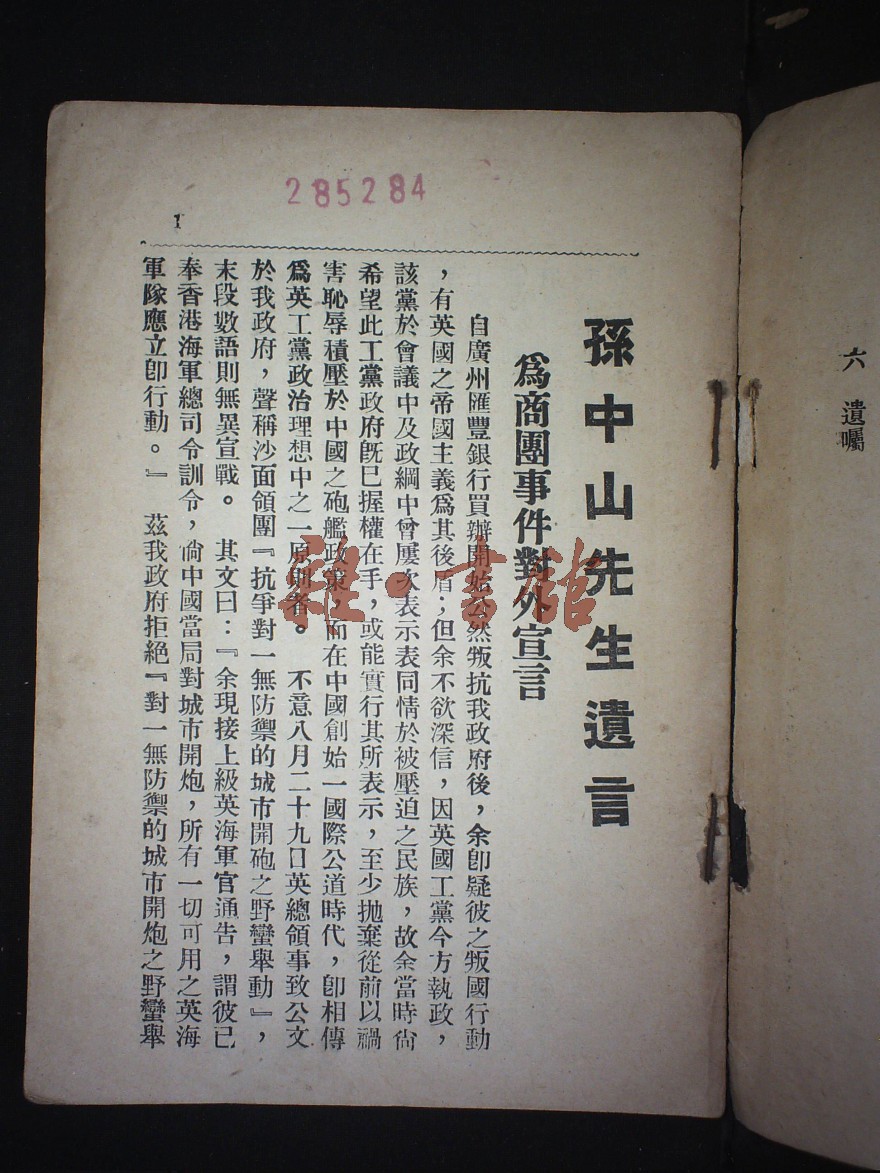 六　遺囑
285284
1
孫中山先生遺言
爲商團事件對外宣言
自廣州匯豐銀行買辦開始公然叛抗我政府後，余卽疑彼之叛國行動
，有英國之帝國主義爲其後盾；但余不欲深信，因英國工黨今方執政，
該黨於會議中及政綱中曾屢次表示表同情於被壓迫之民族，故余當時尙
希望此工黨政府旣已握權在手，或能實行其所表示，至少拋棄從前以禍
害恥辱積壓於中國之砲艦政策，而在中國創始一國際公道時代，卽相傳
爲英工黨政治理想中之一原則者。　不意八月二十九日英總領事致公文
於我政府，聲稱沙面領團『抗爭對一無防禦的城市開砲之野蠻舉動』，
末段數語則無異宣戰。　其文曰：『余現接上級英海軍官通告，謂彼已
奉香港海軍總司令訓令，倘中國當局對城市開炮，所有一切可用之英海
軍隊應立卽行動。』　茲我政府拒絕『對一無防禦的城市開炮之野蠻舉
雜·書館